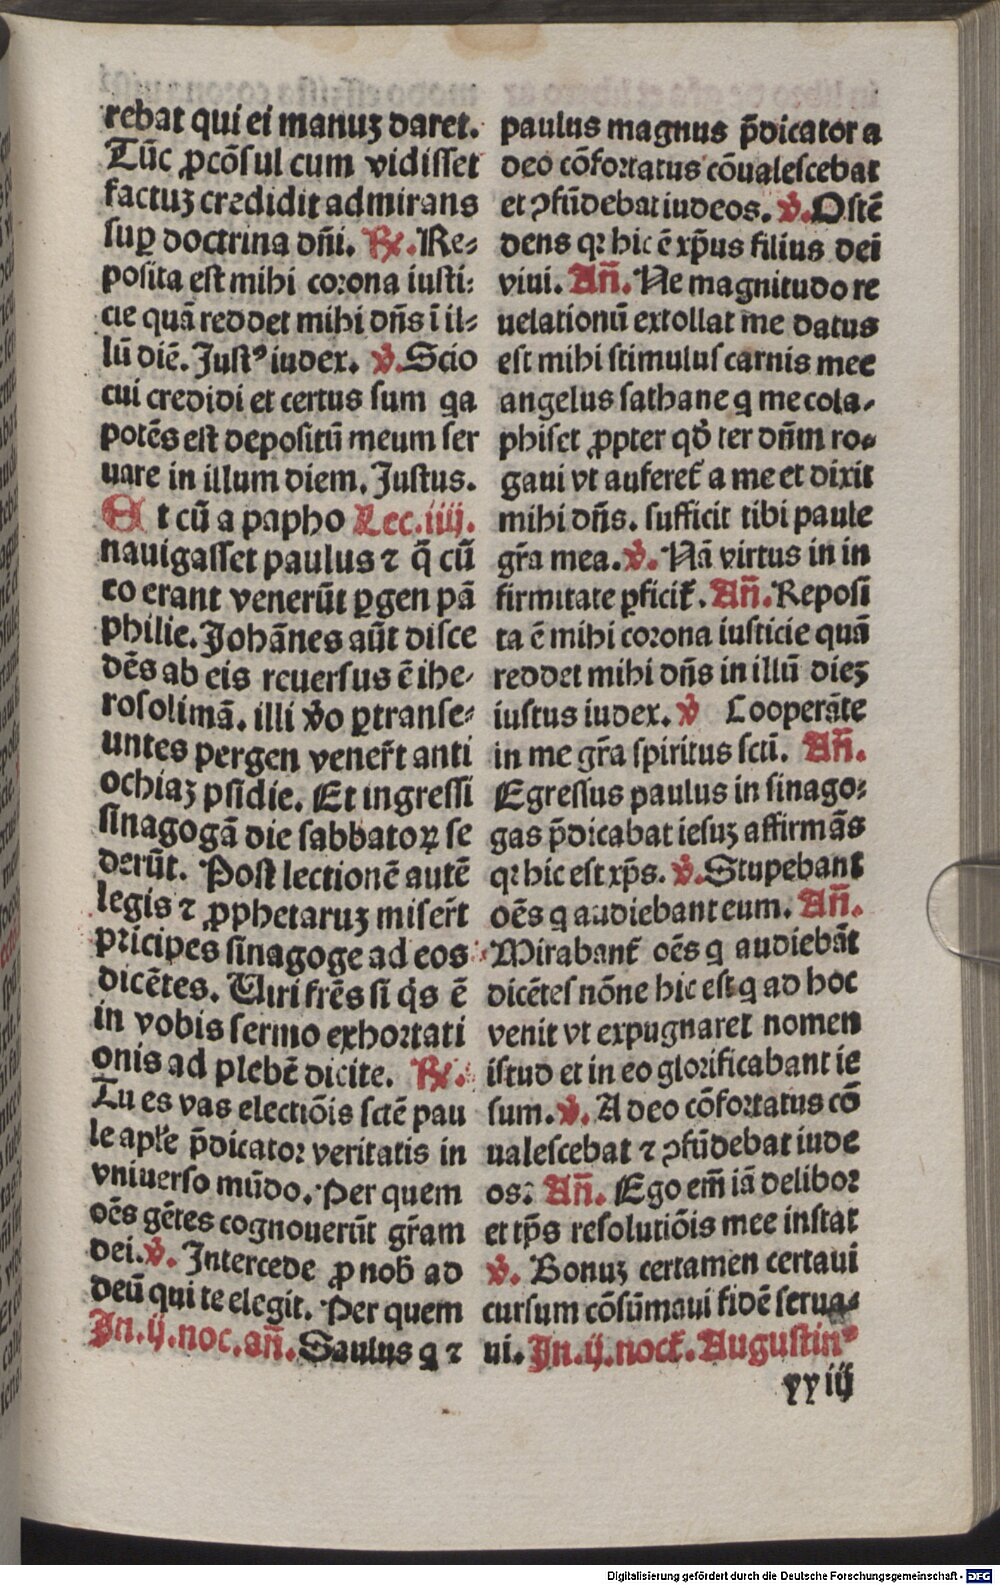 rebat qui ei manuꝫ daret.
Tūc ꝓcōsul cum vidisset
factuꝫ credidit admirans
suꝑ doctrina dn̄i. ℟. Re⸗
posita est mihi corona iusti⸗
cie quā reddet mihi dn̄s ī il⸗
lū diē. Justꝰ iudex. ℣. Scio
cui credidi et certus sum qa
potēs est depositū meum ser
uare in illum diem. Justus.
Et cū a papho Lec.iiij.
nauigasset paulus ⁊ q̄ cū
eo erant venerūt ꝑgen pā
philie. Johānes aūt disce
dēs ab eis reuersus ē ihe⸗
rosolimā. illi v̄o ꝑtranse⸗
untes pergen vener̄t anti
ochiaꝫ psidie. Et ingressi
sinagogā die sabbatoꝝ se
derūt. Post lectionē autē
legis ⁊ ꝓphetaruꝫ miser̄t
prīcipes sinagoge ad eos
dicētes. Uiri fr̄es si q̇s ē
in vobis sermo exhortati
onis ad plebē dicite. ℟.
Tu es vas electiōis sctē pau
le apl̄e p̄dicator veritatis in
vniuerso mūdo. Per quem
oēs gētes cognouerūt gr̄am
dei. ℣. Intercede ꝓ nob̄ ad
deū qui te elegit. Per quem
Jn.ij.noc.an̄. Saulus q ⁊
paulus magnus p̄dicator a
deo cōfortatus cōualescebat
et ꝯfūdebat iudeos. ℣. Ostē
dens qꝛ hic ē xp̄us filius dei
viui. An̄. Ne magnitudo re
uelationū extollat me datus
est mihi stimulus carnis mee
angelus sathane q me cola⸗
phiset ꝓpter qḋ ter dn̄m ro⸗
gaui vt auferet̄ a me et dixit
mihi dn̄s. sufficit tibi paule
gr̄a mea. ℣. Nā virtus in in
firmitate ꝑficit̄. An̄. Reposi
ta ē mihi corona iusticie quā
reddet mihi dn̄s in illū dieꝫ
iustus iudex. ℣ Cooperāte
in me gr̄a spiritus scti. An̄.
Egressus paulus in sinago⸗
gas p̄dicabat iesuꝫ affirmās
qꝛ hic est xp̄s. ℣. Stupebant
oēs q audiebant eum. An̄.
Mirabant̄ oēs q audiebāt
dicētes nōne hic est q ad hoc
venit vt expugnaret nomen
istud et in eo glorificabant ie
sum. ℣. Adeo cōfortatus cō
ualescebat ⁊ ꝯfūdebat iude
os. An̄. Ego em̄ iā delibor
et tp̄s resolutiōis mee instat
℣. Bonuꝫ certamen certaui
cursum cōsūmaui fidē serua⸗
ui. Jn.ij.noct̄. Augustinꝰ
xxiij
Digitalisierung gefördert durch die Deutsche Forschungsgemeinschaft - DFG